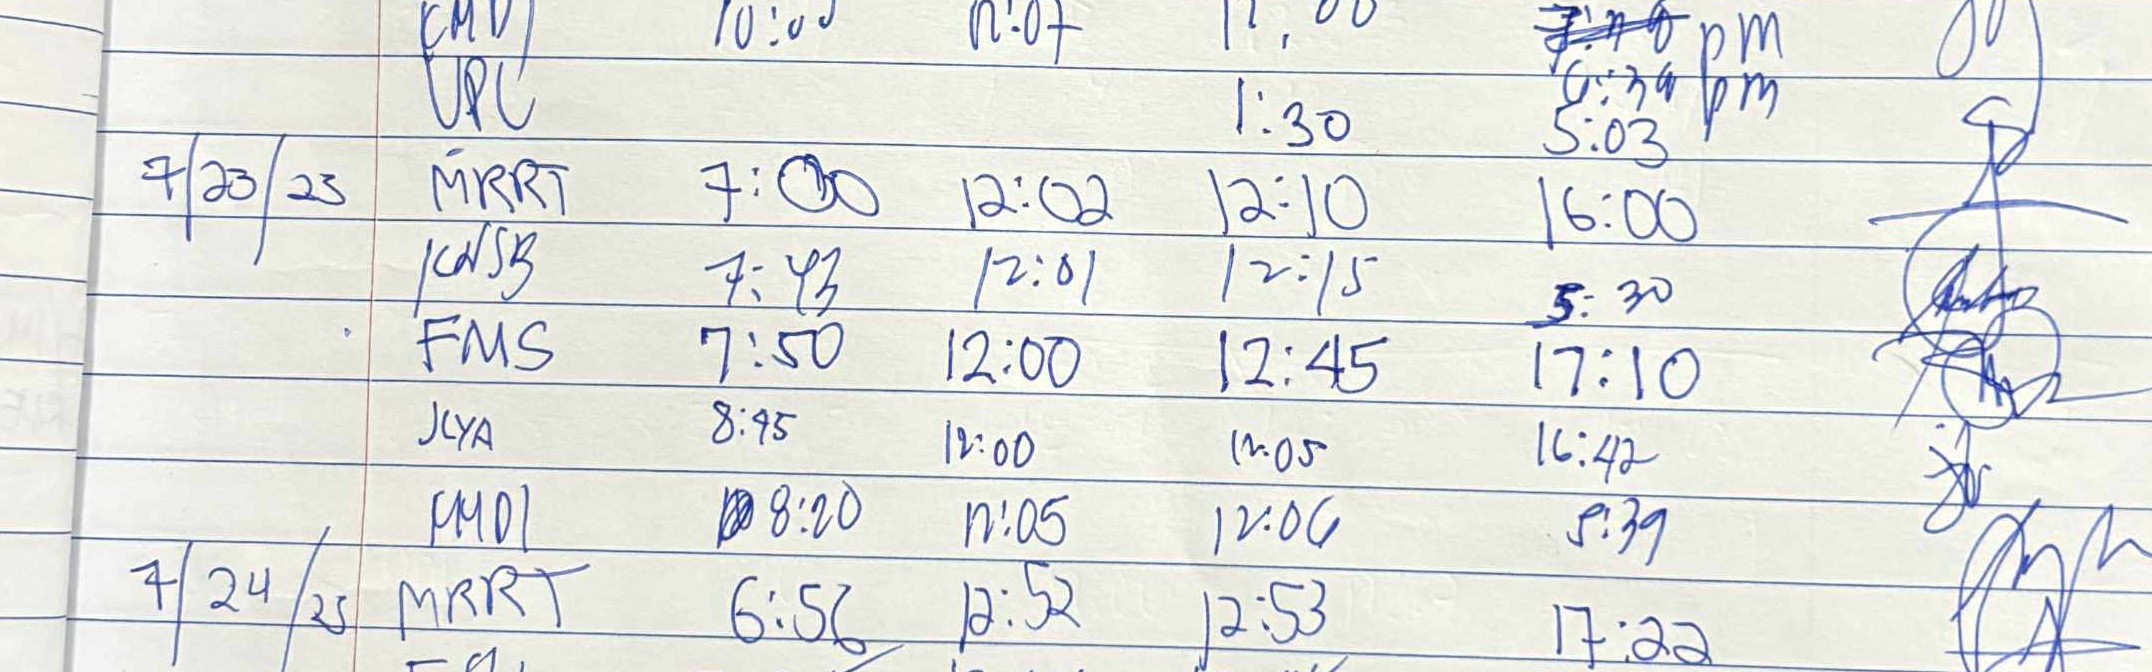 KMDJ 10:00 12:07 pm
6:39 pm
UPC 1:30 5:03
7/23/25 MRRT 7:00 12:02 12:10 16:00
KNSB 7:43 12:01 12:15 5:30
FMS 7:50 12:00 12:45 17:10
JLYA 8:45 12:00 12:05 16:42
KMDJ 8:20 12:05 12:06 5:39
7/24/25 MRRT 6:56 12:52 12:53 17:22